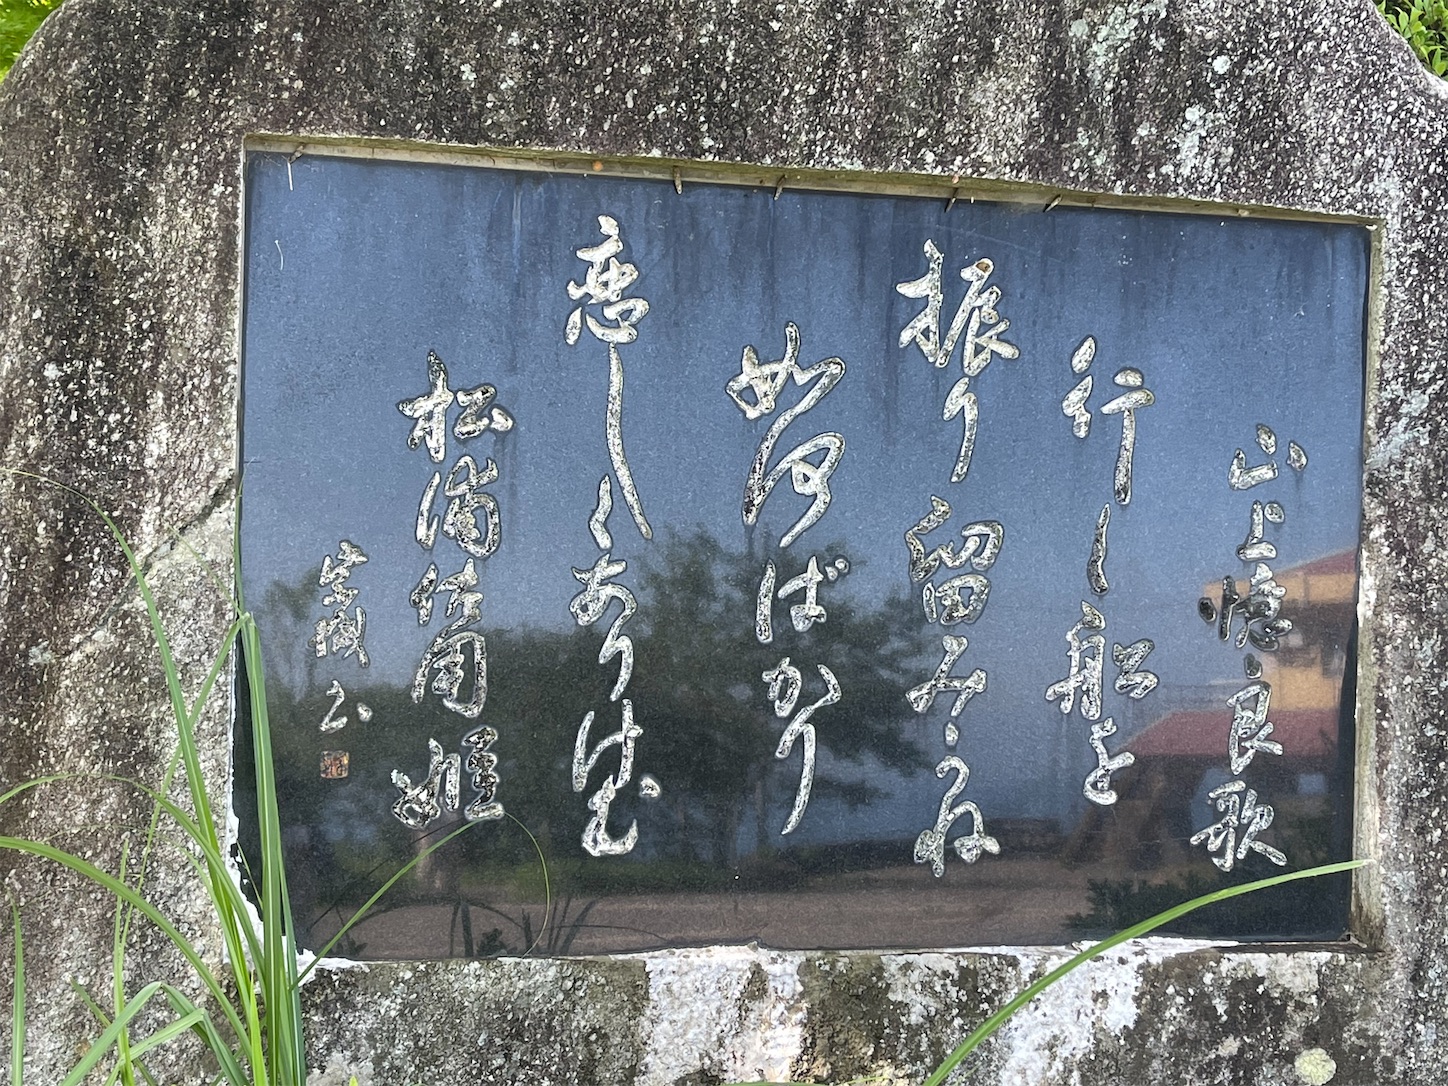 山上憶良歌
行く船を
振り留みかね
如何ばかり
恋しくありけむ
松浦佐用姫